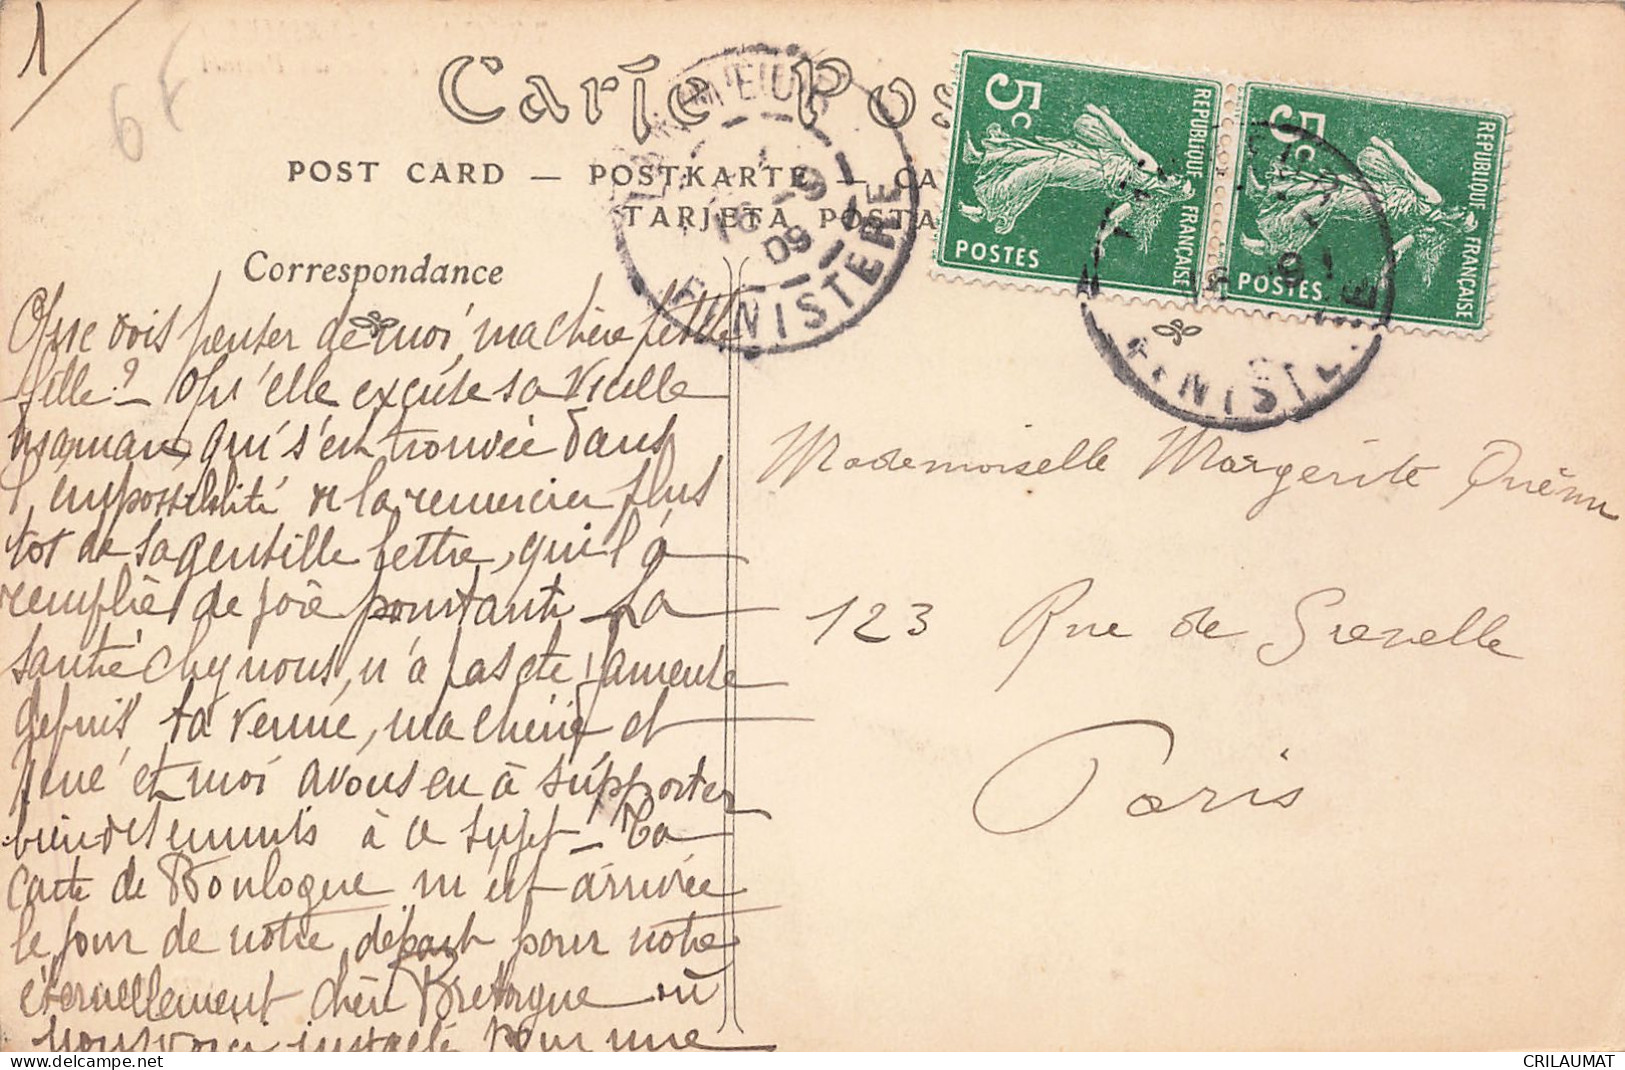 1
6F
Carte Pos
POST CARD — POSTKARTE — CA
TARJETA POSTA
Correspondance
5c
REPUBLIQUE FRANÇAISE
POSTES
5c
REPUBLIQUE FRANÇAISE
POSTES
16 -9
09
FINISTERE
FINISTE E
Que dois penser de moi, ma chère petite
fille? – Qu'elle excuse sa vieille
maman, qui s'est trouvée dans
l'impossibilité de la remercier plus
tot de sa gentille lettre, qui l'a
remplie de joie pourtant – La
santé chez nous, n'a pas été fameuse
depuis ta venue, ma chérie et
René et moi avons eu à supporter
bien des ennuis à ce sujet – Ta
carte de Boulogne m'est arrivée
le jour de notre départ pour notre
éternellement chère Bretagne où
nous voici installé pour une
Mademoiselle Margerite Quénu
123 Rue de Grenelle
Paris
CRILAUMAT